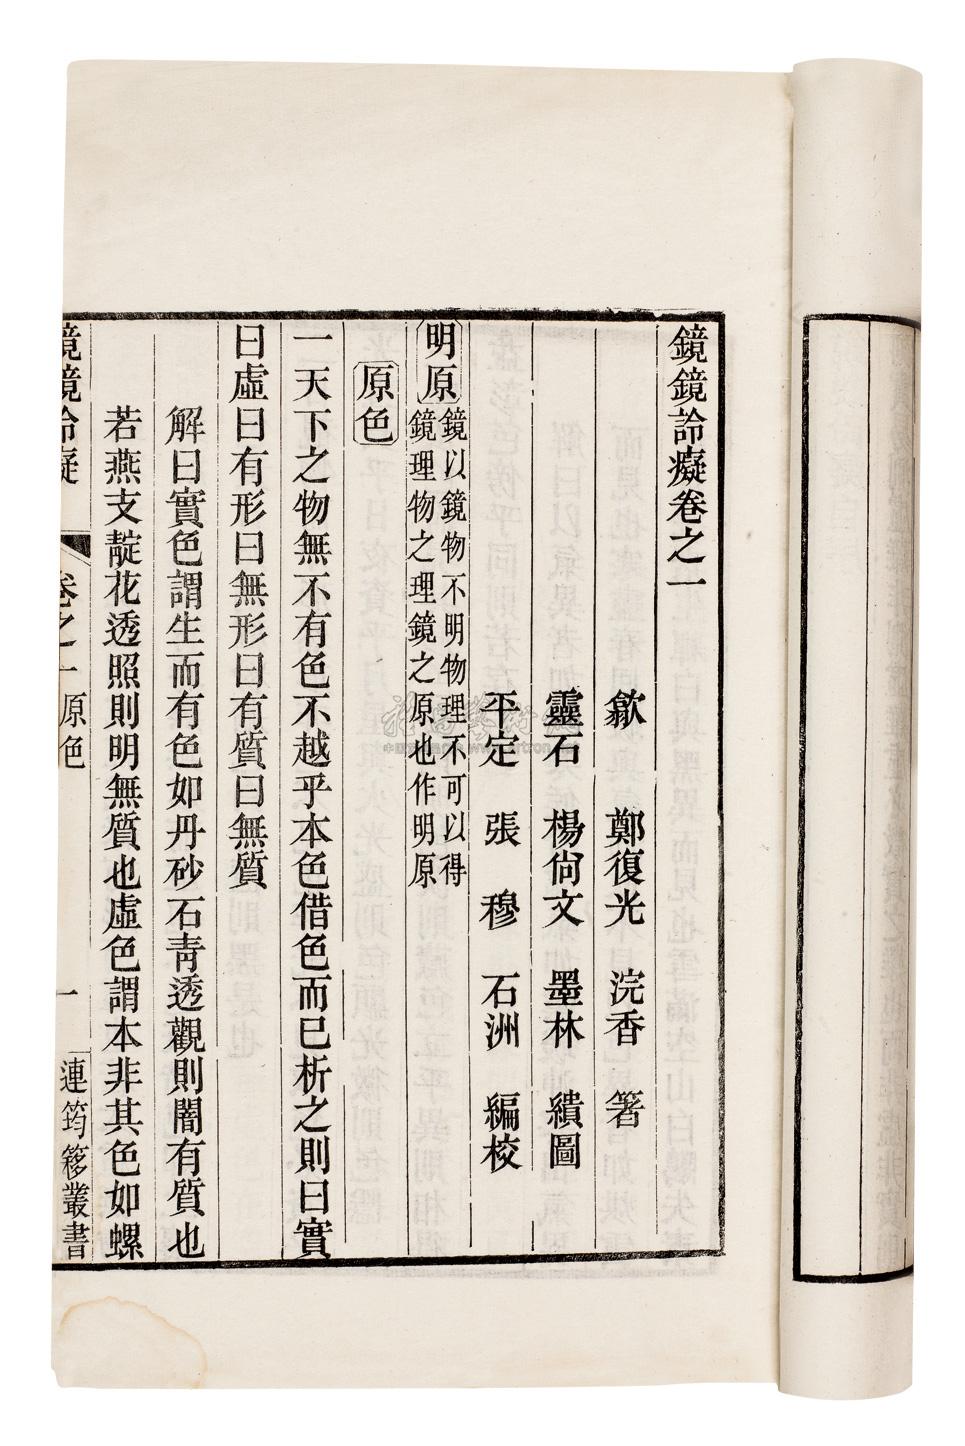 鏡鏡詅癡卷之一
歙　鄭復光　浣香　箸
靈石　楊尙文　墨林　繢圖
平定　張　穆　石洲　編校
明原
鏡以鏡物不明物理不可以得
鏡理物之理鏡之原也作明原
原色
一天下之物無不有色不越乎本色借色而已析之則曰實
曰虛曰有形曰無形曰有質曰無質
解曰實色謂生而有色如丹砂石靑透觀則闇有質也
若燕支靛花透照則明無質也虛色謂本非其色如螺
鏡鏡詅癡　卷之一原色　一　連筠簃叢書